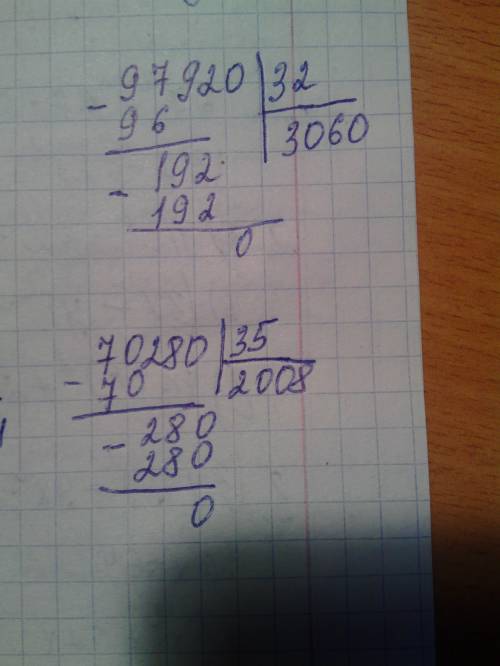 - 97920 | 32
96 3060
- 192
192
0
- 70280 | 35
70 2008
- 280
280
0